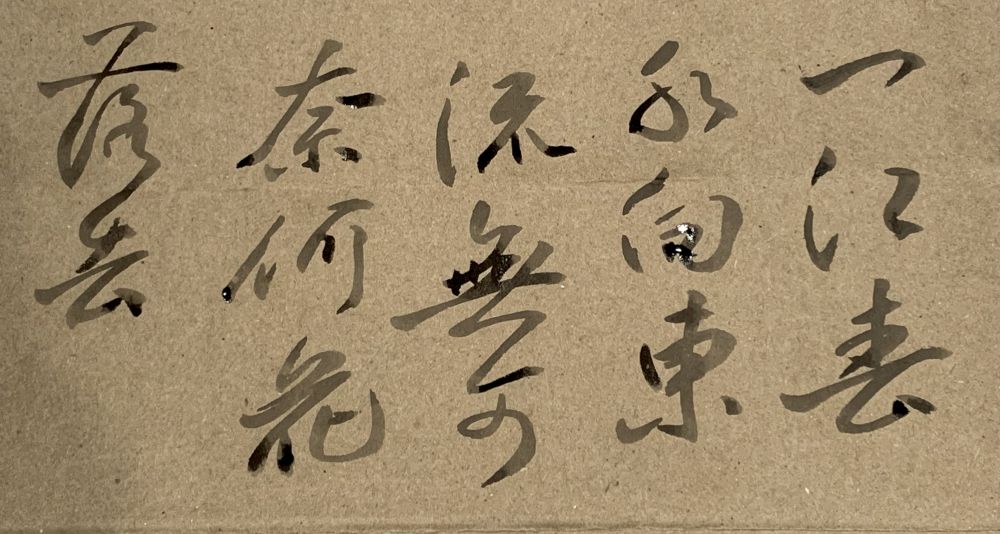 一江春
水向東
流無可
奈何花
落去